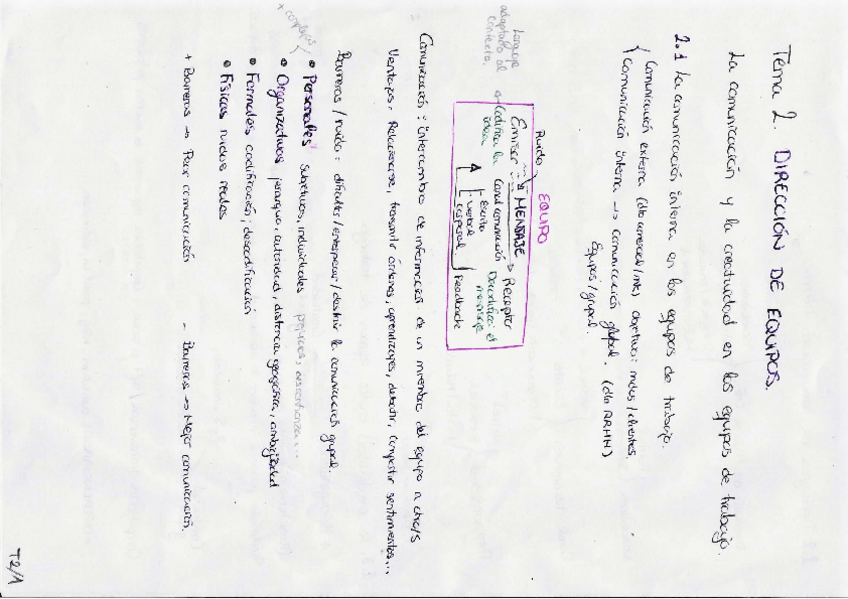 Tema 2. DIRECCIÓN DE EQUIPOS.
La comunicación y la creatividad en los equipos de trabajo.
2.1 La comunicación interna en los equipos de trabajo.
Comunicación externa (dto comercial/mk) objetivo: medios/clientes.
Comunicación interna → comunicación global. (dto RRHH)
Equipos/grupal.
Ruido EQUIPO
Emisor MENSAJE → Receptor
Lenguaje adaptado al contexto.
Codifica la idea
Canal comunicación
Decodifica el mensaje
Escrito
Verbal
Corporal
Feedback
Comunicación: intercambio de información de un miembro del equipo a otro/s
Ventajas. Relacionarse, transmitir órdenes, aprendizajes, debatir, compartir sentimientos...
Barreras/ruido: dificultar/entorpecer/destruir la comunicación grupal.
+ complejas
• Personales subjetivos, individuales prejuicios, desconfianza...
• Organizativas jerarquía, autoridad, distancia geográfica, ambigüedad
• Formales codificación, descodificación
• Físicas ruidos redes
+ Barreras → Peor comunicación - Barreras → Mejor comunicación.
T2/1